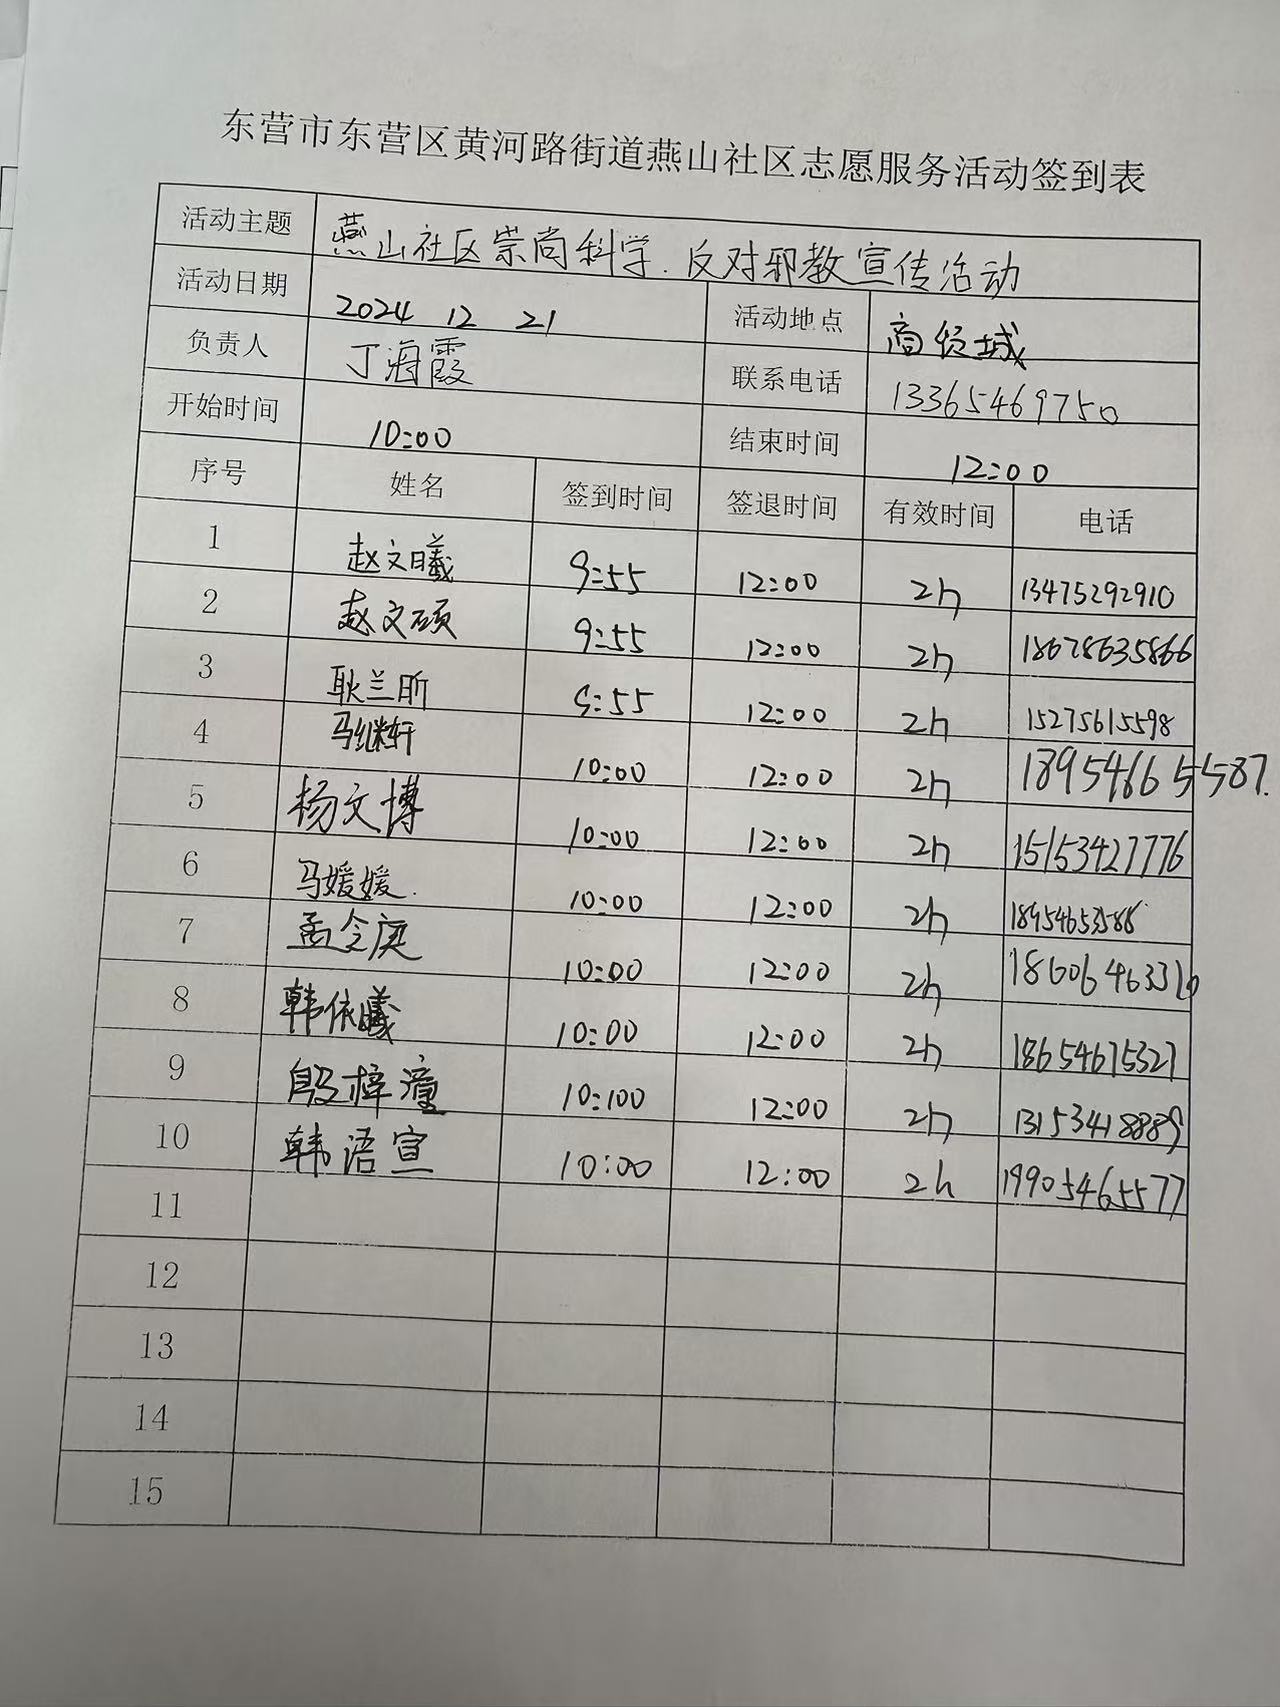 东营市东营区黄河路街道燕山社区志愿服务活动签到表
活动主题 燕山社区崇尚科学.反对邪教宣传活动
活动日期 2024 12 21 活动地点 商贸城
负责人 丁海霞 联系电话 13365469750
开始时间 10:00 结束时间 12:00
序号 姓名 签到时间 签退时间 有效时间 电话
1 赵文曦 9:55 12:00 2h 13475292910
2 赵文硕 9:55 12:00 2h 18678635866
3 耿兰昕 9:55 12:00 2h 15275615598
4 马继轩 10:00 12:00 2h 18954665587.
5 杨文博 10:00 12:00 2h 15153427776
6 马媛媛. 10:00 12:00 2h
7 孟令 10:00 12:00 2h
8 韩依曦 10:00 12:00 2h 18654675327
9 殷梓潼 10:100 12:00 2h 13153418889
10 韩语宣 10:00 12:00 2h 19905465577
11
12
13
14
15